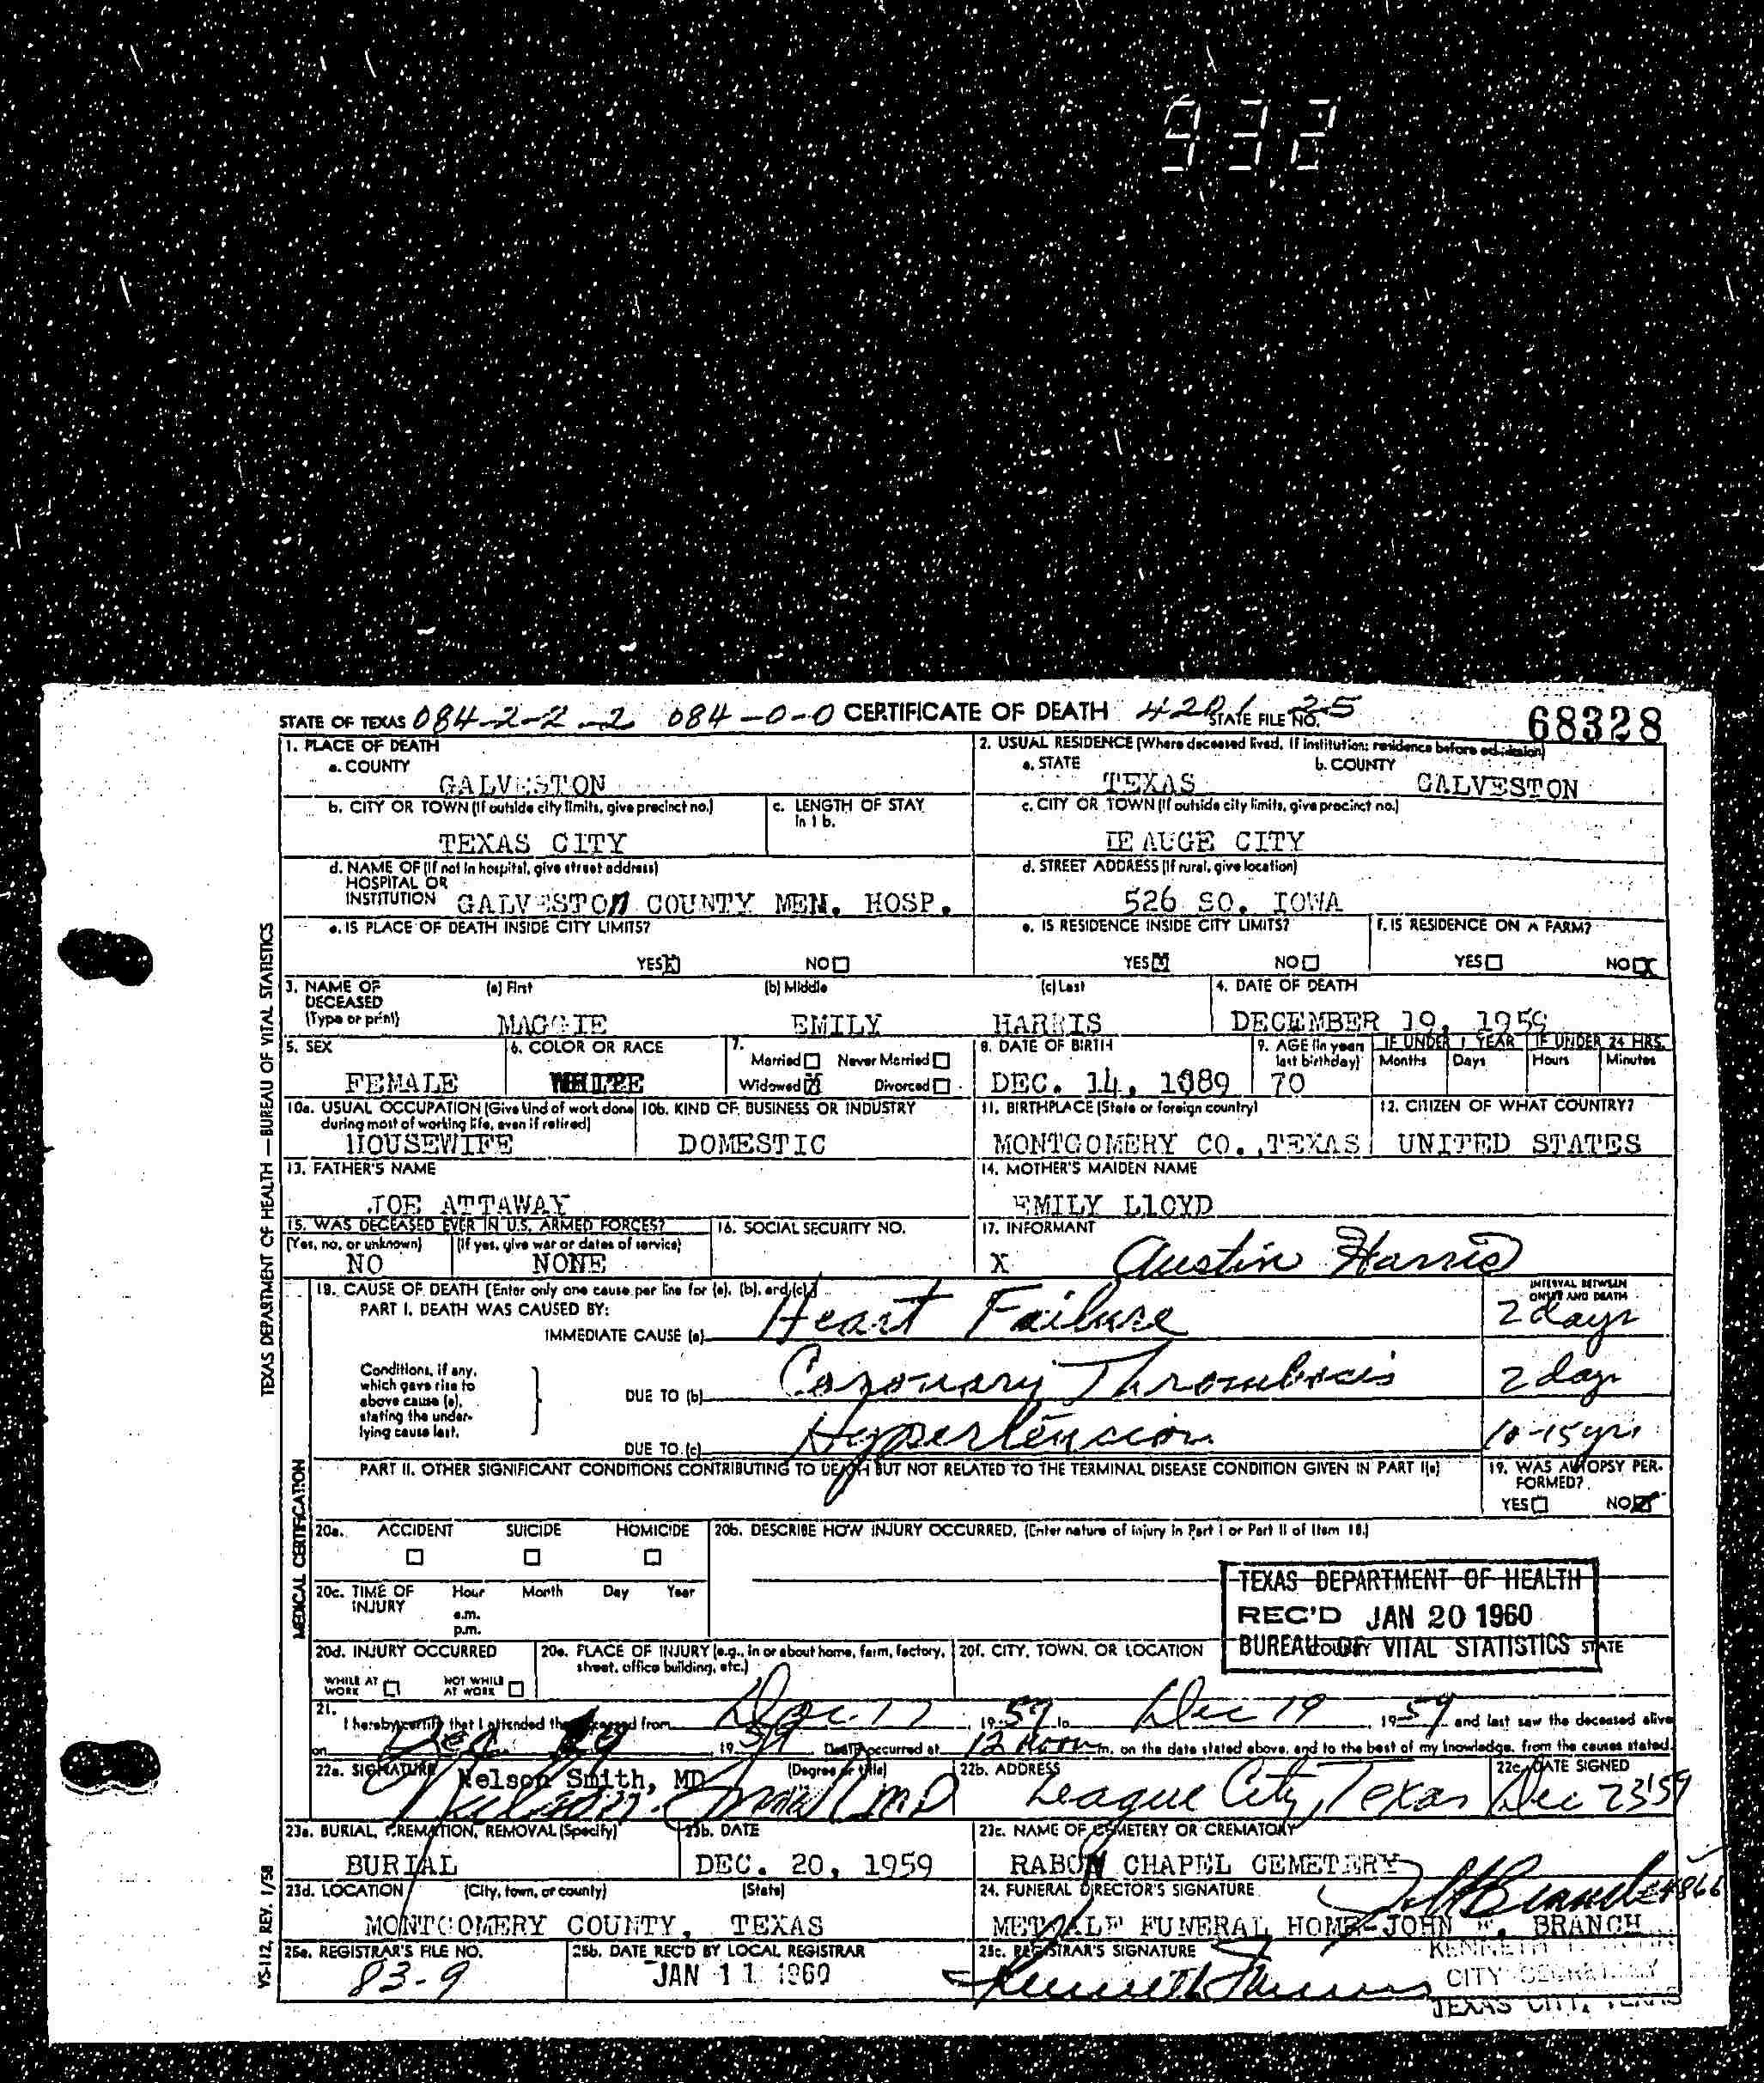 932
STATE OF TEXAS 084-2-2-2 084-0-0 CERTIFICATE OF DEATH STATE FILE NO. 68328
1. PLACE OF DEATH
a. COUNTY
GALVESTON
2. USUAL RESIDENCE (Where deceased lived. If institution: residence before admission)
a. STATE
TEXAS
b. COUNTY
GALVESTON
b. CITY OR TOWN (If outside city limits, give precinct no.)
TEXAS CITY
c. LENGTH OF STAY in 1b.
c. CITY OR TOWN (If outside city limits, give precinct no.)
LEAUGE CITY
d. NAME OF (If not in hospital, give street address)
HOSPITAL OR
INSTITUTION GALVESTON COUNTY MEM. HOSP.
d. STREET ADDRESS (If rural, give location)
526 SO. IOWA
e. IS PLACE OF DEATH INSIDE CITY LIMITS?
YES NO
e. IS RESIDENCE INSIDE CITY LIMITS?
YES NO
f. IS RESIDENCE ON A FARM?
YES NO
3. NAME OF DECEASED (Type or print)
(a) First (b) Middle (c) Last
MAGGIE EMILY HARRIS
4. DATE OF DEATH
DECEMBER 19, 1959
5. SEX
FEMALE
6. COLOR OR RACE
WHITE
7.
Married Never Married
Widowed Divorced
8. DATE OF BIRTH
DEC. 14, 1889
9. AGE (In years last birthday)
70
IF UNDER 1 YEAR
Months Days
IF UNDER 24 HRS.
Hours Minutes
10a. USUAL OCCUPATION (Give kind of work done during most of working life, even if retired)
HOUSEWIFE
10b. KIND OF BUSINESS OR INDUSTRY
DOMESTIC
11. BIRTHPLACE (State or foreign country)
MONTGOMERY CO., TEXAS
12. CITIZEN OF WHAT COUNTRY?
UNITED STATES
13. FATHER'S NAME
JOE ATTAWAY
14. MOTHER'S MAIDEN NAME
EMILY LLOYD
15. WAS DECEASED EVER IN U.S. ARMED FORCES?
(Yes, no, or unknown) (If yes, give war or dates of service)
NO NONE
16. SOCIAL SECURITY NO.
17. INFORMANT
X Austin Harris
18. CAUSE OF DEATH (Enter only one cause per line for (a), (b), and (c).)
PART I. DEATH WAS CAUSED BY:
INTERVAL BETWEEN ONSET AND DEATH
IMMEDIATE CAUSE (a) Heart Failure 2 days
Conditions, if any, which gave rise to above cause (a), stating the underlying cause last.
DUE TO (b) Coronary Thrombosis 2 days
DUE TO (c) Hypertension 10-15 yrs
PART II. OTHER SIGNIFICANT CONDITIONS CONTRIBUTING TO DEATH BUT NOT RELATED TO THE TERMINAL DISEASE CONDITION GIVEN IN PART I(a)
19. WAS AUTOPSY PERFORMED?
YES NO
20a. ACCIDENT SUICIDE HOMICIDE
20b. DESCRIBE HOW INJURY OCCURRED. (Enter nature of injury in Part I or Part II of Item 18.)
20c. TIME OF INJURY Hour Month Day Year
a.m.
p.m.
TEXAS DEPARTMENT OF HEALTH
REC'D JAN 20 1960
BUREAU OF VITAL STATISTICS
20d. INJURY OCCURRED
WHILE AT WORK NOT WHILE AT WORK
20e. PLACE OF INJURY (e.g., in or about home, farm, factory, street, office building, etc.)
20f. CITY, TOWN, OR LOCATION COUNTY STATE
21.
I hereby certify that I attended the deceased from Dec. 17 1959 to Dec 19 1959 and last saw the deceased alive
on Dec. 19 1959 Death occurred at 12 noon m. on the date stated above, and to the best of my knowledge, from the causes stated.
22a. SIGNATURE (Degree or title)
Nelson Smith, MD
22b. ADDRESS
League City, Texas
22c. DATE SIGNED
Dec 23 '59
23a. BURIAL, CREMATION, REMOVAL (Specify)
BURIAL
23b. DATE
DEC. 20, 1959
23c. NAME OF CEMETERY OR CREMATORY
RABON CHAPEL CEMETERY
23d. LOCATION (City, town, or county) (State)
MONTGOMERY COUNTY, TEXAS
24. FUNERAL DIRECTOR'S SIGNATURE
METCALF FUNERAL HOME-JOHN F. BRANCH
25a. REGISTRAR'S FILE NO.
83-9
25b. DATE REC'D BY LOCAL REGISTRAR
JAN 11 1960
25c. REGISTRAR'S SIGNATURE
CITY SECRETARY
TEXAS CITY, TEXAS
TEXAS DEPARTMENT OF HEALTH — BUREAU OF VITAL STATISTICS
MEDICAL CERTIFICATION
VS-112, REV. 1/58